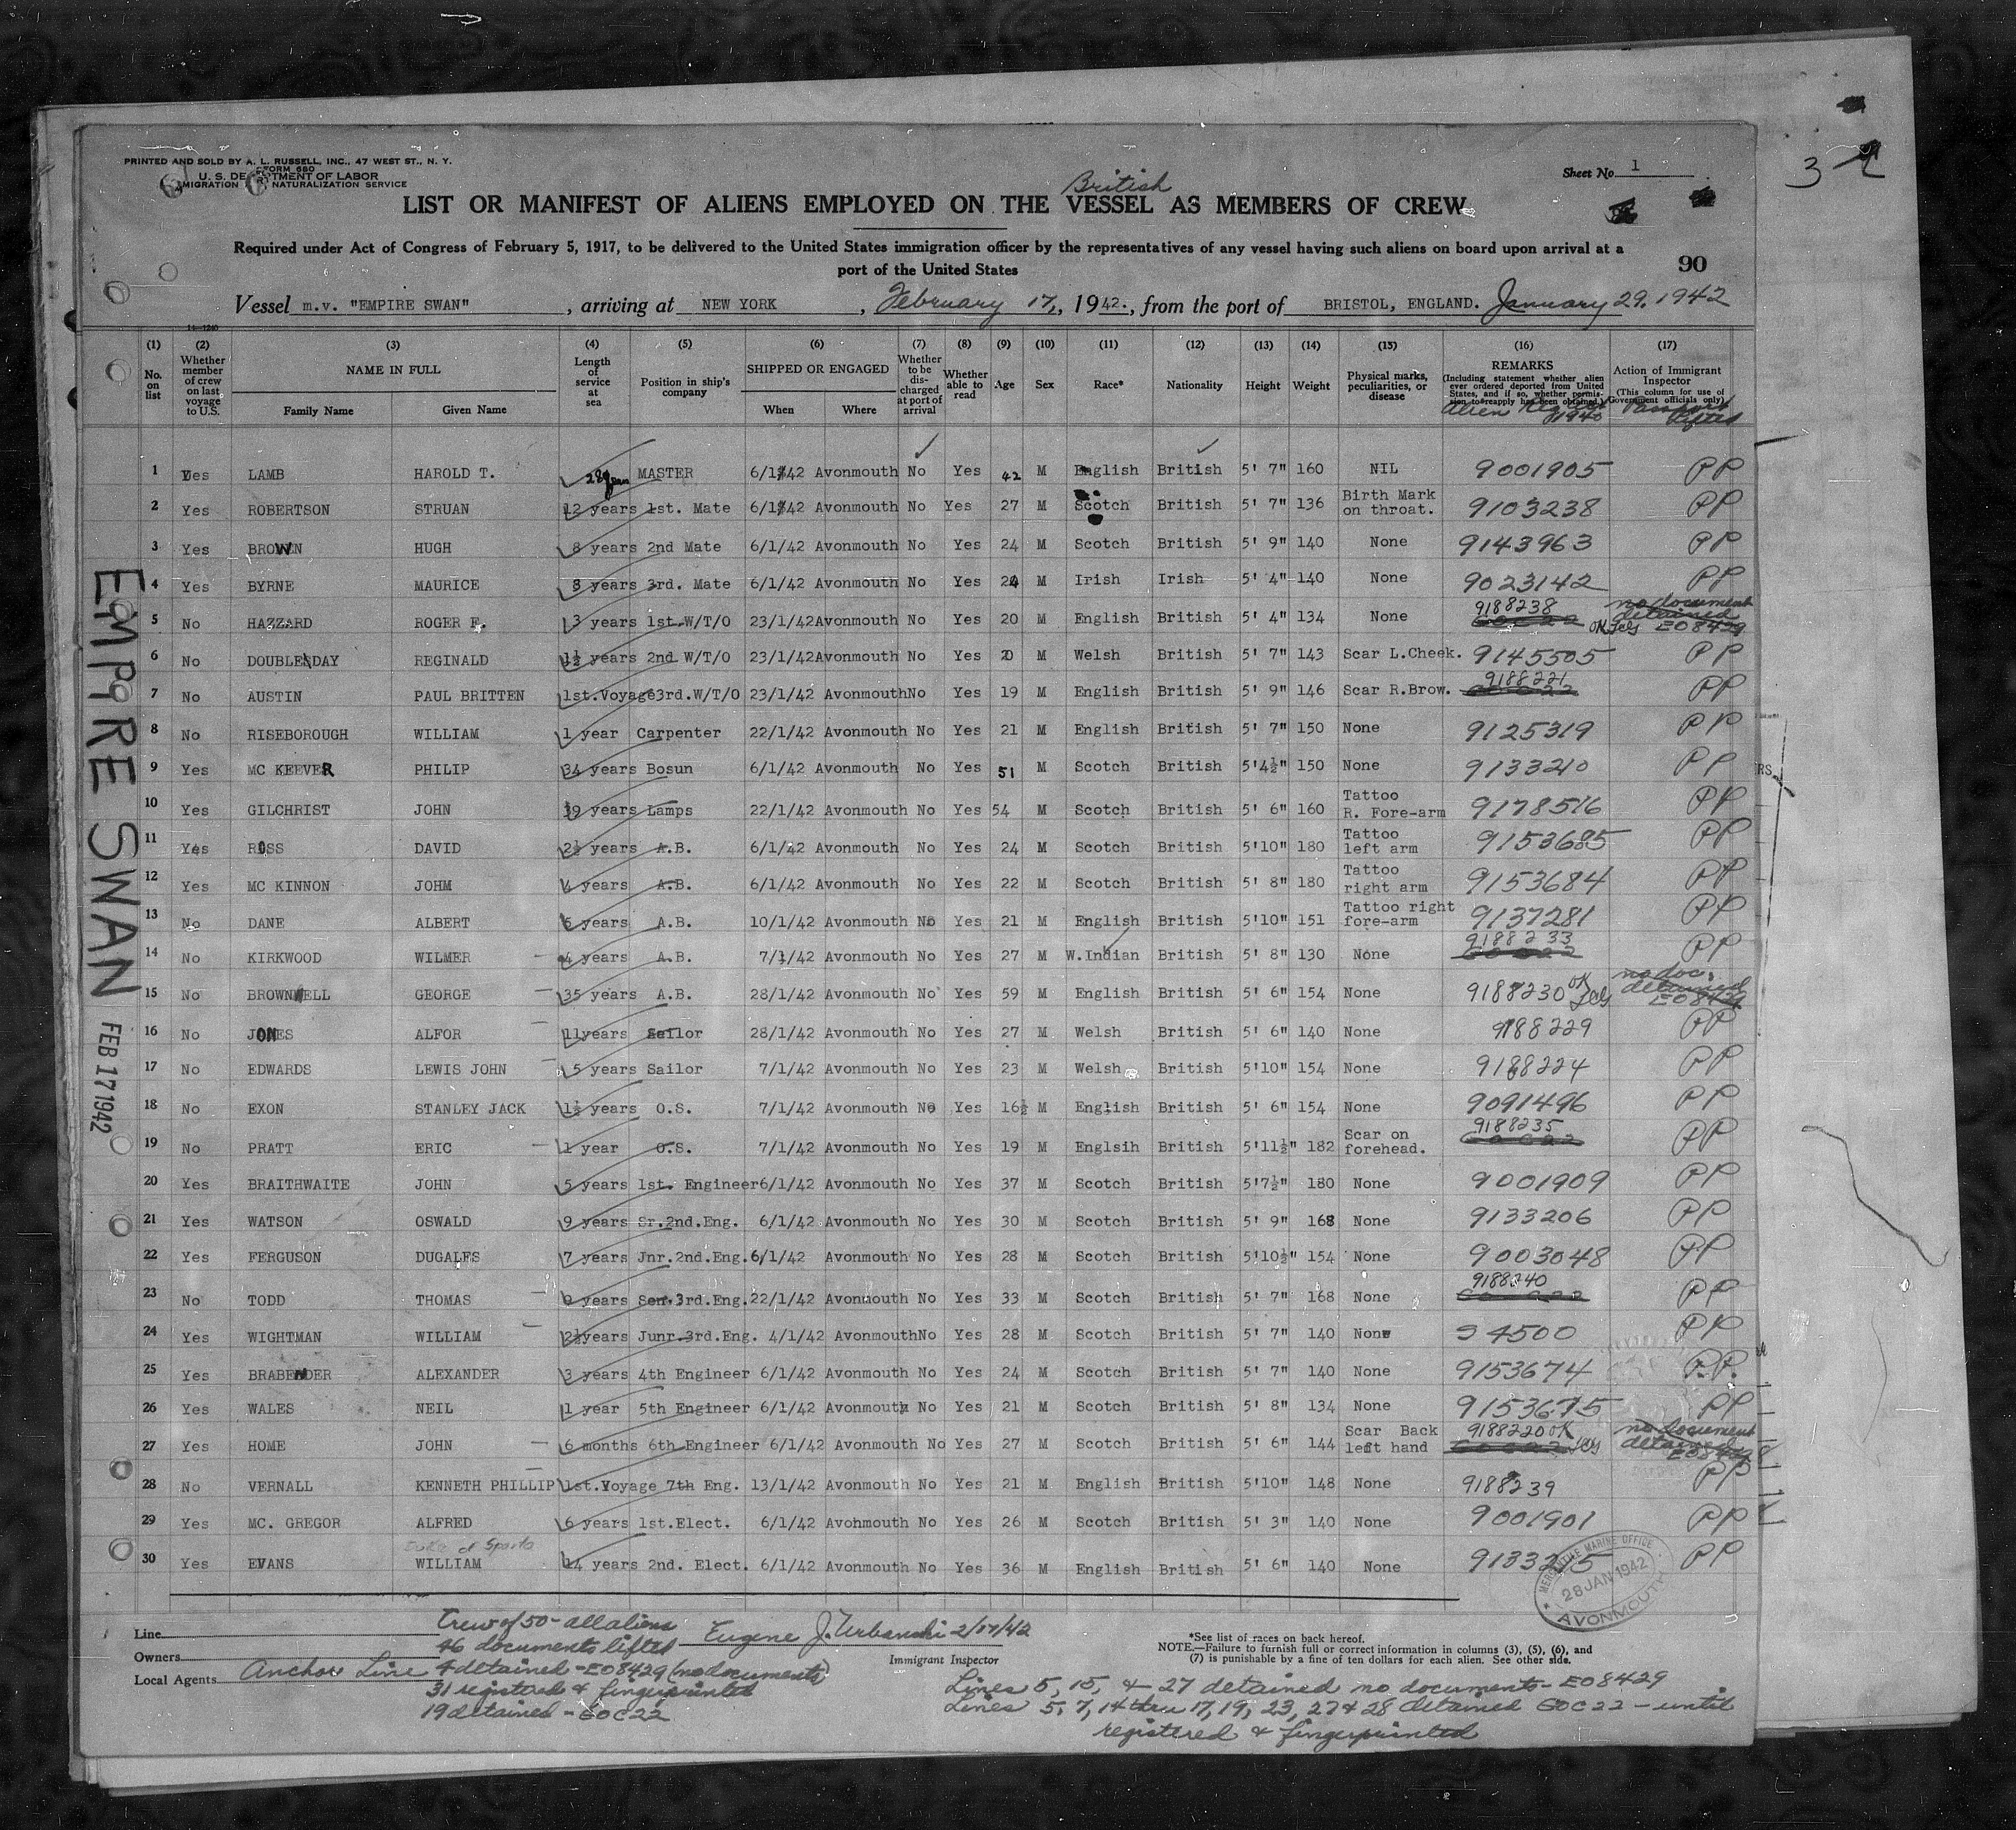 PRINTED AND SOLD BY A. L. RUSSELL, INC., 47 WEST ST., N. Y.
FORM 680
U. S. DE TMENT OF LABOR
MIGRATION NATURALIZATION SERVICE
Sheet No. 1
3
British
LIST OR MANIFEST OF ALIENS EMPLOYED ON THE VESSEL AS MEMBERS OF CREW
Required under Act of Congress of February 5, 1917, to be delivered to the United States immigration officer by the representatives of any vessel having such aliens on board upon arrival at a
port of the United States
90
Vessel m.v. "EMPIRE SWAN" , arriving at NEW YORK , February 17, 1942., from the port of BRISTOL, ENGLAND. January 29, 1942
14-1240
(1) (2) (3) (4) (5) (6) (7) (8) (9) (10) (11) (12) (13) (14) (15) (16) (17)
No. on list
Whether member of crew on last voyage to U.S.
NAME IN FULL
Family Name Given Name
Length of service at sea
Position in ship's company
SHIPPED OR ENGAGED
When Where
Whether to be discharged at port of arrival
Whether able to read
Age
Sex
Race*
Nationality
Height
Weight
Physical marks, peculiarities, or disease
REMARKS
(Including statement whether alien ever ordered deported from United States, and if so, whether permission to reapply has been obtained.)
Action of Immigrant Inspector
(This column for use of Government officials only)
Alien Reg. Act 1940
Passport lifted
1 Yes LAMB HAROLD T. 28 years MASTER 6/1/42 Avonmouth No Yes 42 M English British 5' 7" 160 NIL 9001905 PP
2 Yes ROBERTSON STRUAN 12 years 1st. Mate 6/1/42 Avonmouth No Yes 27 M Scotch British 5' 7" 136 Birth Mark on throat. 9103238 PP
3 Yes BROWN HUGH 8 years 2nd Mate 6/1/42 Avonmouth No Yes 24 M Scotch British 5' 9" 140 None 9143963 PP
4 Yes BYRNE MAURICE 8 years 3rd. Mate 6/1/42 Avonmouth No Yes 24 M Irish Irish 5' 4" 140 None 9023142 PP
5 No HAZZARD ROGER F. 3 years 1st.W/T/O 23/1/42 Avonmouth No Yes 20 M English British 5' 4" 134 None 9188238 no document detained E08429
6 No DOUBLEDAY REGINALD 1½ years 2nd W/T/O 23/1/42 Avonmouth No Yes 20 M Welsh British 5' 7" 143 Scar L.Cheek. 9145505 PP
7 No AUSTIN PAUL BRITTEN 1st.Voyage 3rd.W/T/O 23/1/42 Avonmouth No Yes 19 M English British 5' 9" 146 Scar R.Brow. 9188221 PP
8 No RISEBOROUGH WILLIAM 1 year Carpenter 22/1/42 Avonmouth No Yes 21 M English British 5' 7" 150 None 9125319 PP
9 Yes MC KEEVER PHILIP 34 years Bosun 6/1/42 Avonmouth No Yes 51 M Scotch British 5'4½" 150 None 9133210 PP
10 Yes GILCHRIST JOHN 39 years Lamps 22/1/42 Avonmouth No Yes 54 M Scotch British 5' 6" 160 Tattoo R. Fore-arm 9178516 PP
11 Yes ROSS DAVID 2½ years A.B. 6/1/42 Avonmouth No Yes 24 M Scotch British 5'10" 180 Tattoo left arm 9153685 PP
12 Yes MC KINNON JOHM 4 years A.B. 6/1/42 Avonmouth No Yes 22 M Scotch British 5' 8" 180 Tattoo right arm 9153684 PP
13 No DANE ALBERT 5 years A.B. 10/1/42 Avonmouth No Yes 21 M English British 5'10" 151 Tattoo right fore-arm 9137281 PP
14 No KIRKWOOD WILMER 4 years A.B. 7/1/42 Avonmouth No Yes 27 M W.Indian British 5' 8" 130 None 9188233 PP
15 No BROWNELL GEORGE 35 years A.B. 28/1/42 Avonmouth No Yes 59 M English British 5' 6" 154 None 9188230 OK no doc. detained E08429
16 No JONES ALFOR 11years Sailor 28/1/42 Avonmouth No Yes 27 M Welsh British 5' 6" 140 None 9188229 PP
17 No EDWARDS LEWIS JOHN 5 years Sailor 7/1/42 Avonmouth No Yes 23 M Welsh British 5'10" 154 None 9188224 PP
18 No EXON STANLEY JACK 1½ years O.S. 7/1/42 Avonmouth No Yes 16½ M English British 5' 6" 154 None 9091496 PP
19 No PRATT ERIC 1 year O.S. 7/1/42 Avonmouth No Yes 19 M Englsih British 5'11½" 182 Scar on forehead. 9188235 PP
20 Yes BRAITHWAITE JOHN 5 years 1st. Engineer 6/1/42 Avonmouth No Yes 37 M Scotch British 5'7½" 180 None 9001909 PP
21 Yes WATSON OSWALD 9 years Sr.2nd.Eng. 6/1/42 Avonmouth No Yes 30 M Scotch British 5' 9" 168 None 9133206 PP
22 Yes FERGUSON DUGALFS 7 years Jnr.2nd.Eng. 6/1/42 Avonmouth No Yes 28 M Scotch British 5'10½" 154 None 9003048 PP
23 No TODD THOMAS years Sen.3rd.Eng. 22/1/42 Avonmouth No Yes 33 M Scotch British 5' 7" 168 None 9188240 PP
24 Yes WIGHTMAN WILLIAM 2½years Junr.3rd.Eng. 4/1/42 Avonmouth No Yes 28 M Scotch British 5' 7" 140 None S 4500 PP
25 Yes BRABENDER ALEXANDER 3 years 4th Engineer 6/1/42 Avonmouth No Yes 24 M Scotch British 5' 7" 140 None 9153674 P.P.
26 Yes WALES NEIL 1 year 5th Engineer 6/1/42 Avonmouth No Yes 21 M Scotch British 5' 8" 134 None 9153675 PP
27 Yes HOME JOHN 6 months 6th Engineer 6/1/42 Avonmouth No Yes 27 M Scotch British 5' 6" 144 Scar Back left hand 9188220 OK no document detained E08429
28 No VERNALL KENNETH PHILLIP 1st.Voyage 7th Eng. 13/1/42 Avonmouth No Yes 21 M English British 5'10" 148 None 9188239 PP
29 Yes MC. GREGOR ALFRED 6 years 1st.Elect. 6/1/42 Avohmouth No Yes 26 M Scotch British 5' 3" 140 None 9001901 PP
30 Yes EVANS WILLIAM 14 years 2nd. Elect. 6/1/42 Avonmouth No Yes 36 M English British 5' 6" 140 None 9133215 PP
EMPIRE SWAN FEB 17 1942
MERCANTILE MARINE OFFICE
28 JAN 1942
AVONMOUTH
Line
Owners
Local Agents Anchor Line
Crew of 50 - all aliens
46 documents lifted
4 detained - E08429 (no documents)
31 registered & fingerprinted
19 detained - GOC22
Eugene J. Urbanski 2/17/42
Immigrant Inspector
*See list of races on back hereof.
NOTE.—Failure to furnish full or correct information in columns (3), (5), (6), and
(7) is punishable by a fine of ten dollars for each alien. See other side.
Lines 5, 15, & 27 detained no documents - E08429
Lines 5, 7, 14 thru 17, 19, 23, 27 & 28 detained GOC 22 - until
registered & fingerprinted